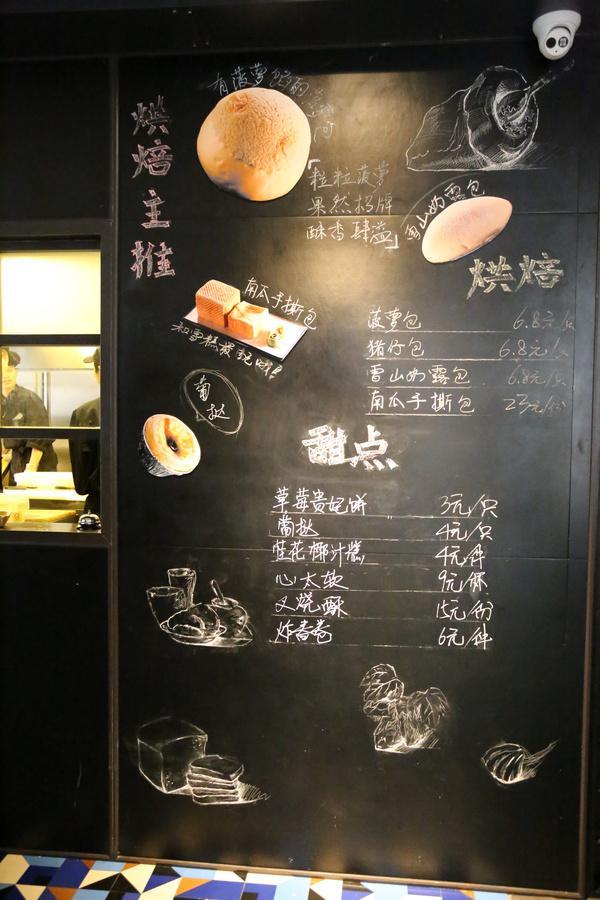 烘焙主推
有菠萝包的
「粒粒菠萝
果然招牌
酥香肆溢」
雪山奶露包
烘焙
南瓜手撕包
葡挞
菠萝包 6.8元/只
猪仔包 6.8元/只
雪山奶露包 6.8元/只
南瓜手撕包 23元/份
甜点
草莓贵妃饼 3元/只
葡挞 4元/只
桂花椰汁糕 4元/件
心太软 9元/杯
叉烧酥 15元/份
炸香卷 6元/件